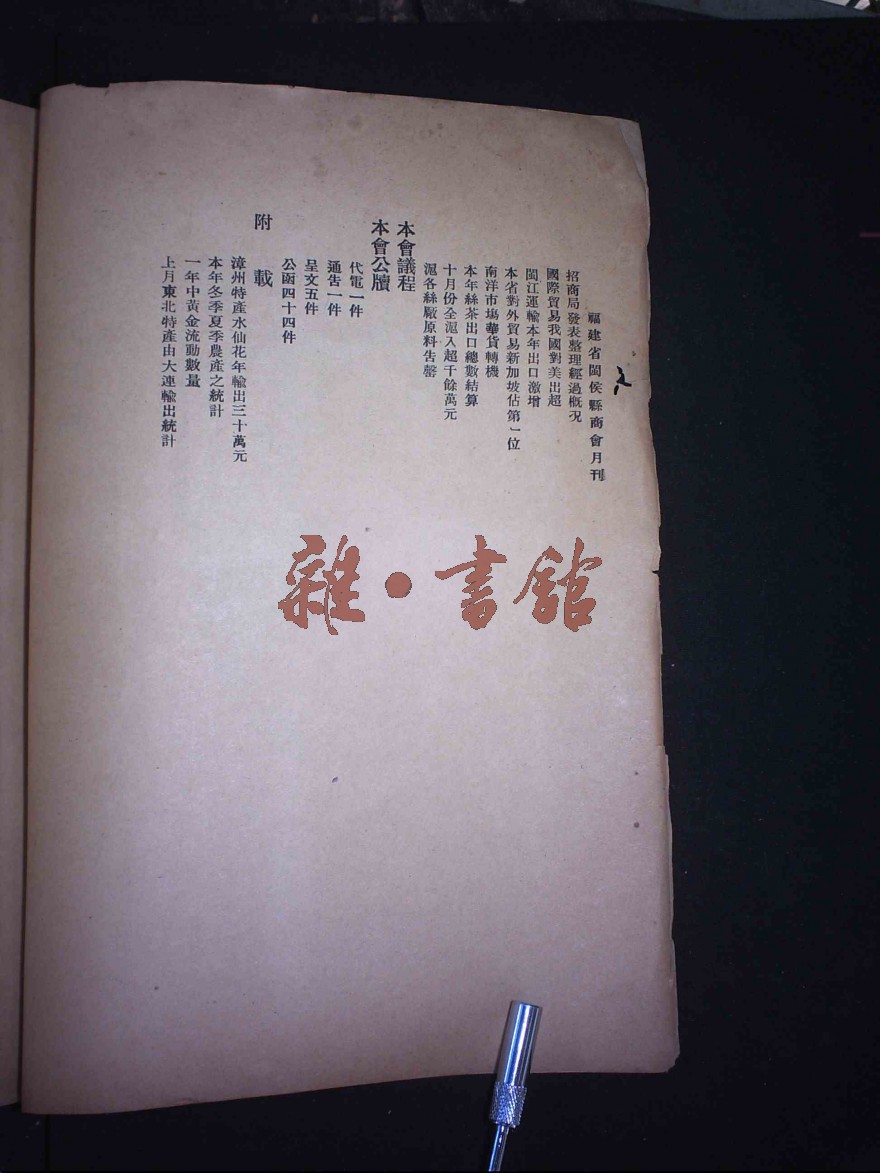 福建省閩侯縣商會月刊
招商局發表整理經過槪况
國際貿易我國對美出超
閩江運輸本年出口激增
本省對外貿易新加坡佔第一位
南洋市塲華貨轉機
本年絲茶出口總數結算
十月份全滬入超千餘萬元
滬各絲廠原料告罄
本會議程
本會公牘
代電一件
通告一件
呈文五件
公函四十四件
附載
漳州特產水仙花年輸出三十萬元
本年冬季夏季農產之統計
一年中黃金流動數量
上月東北特產由大連輸出統計
雜·書館